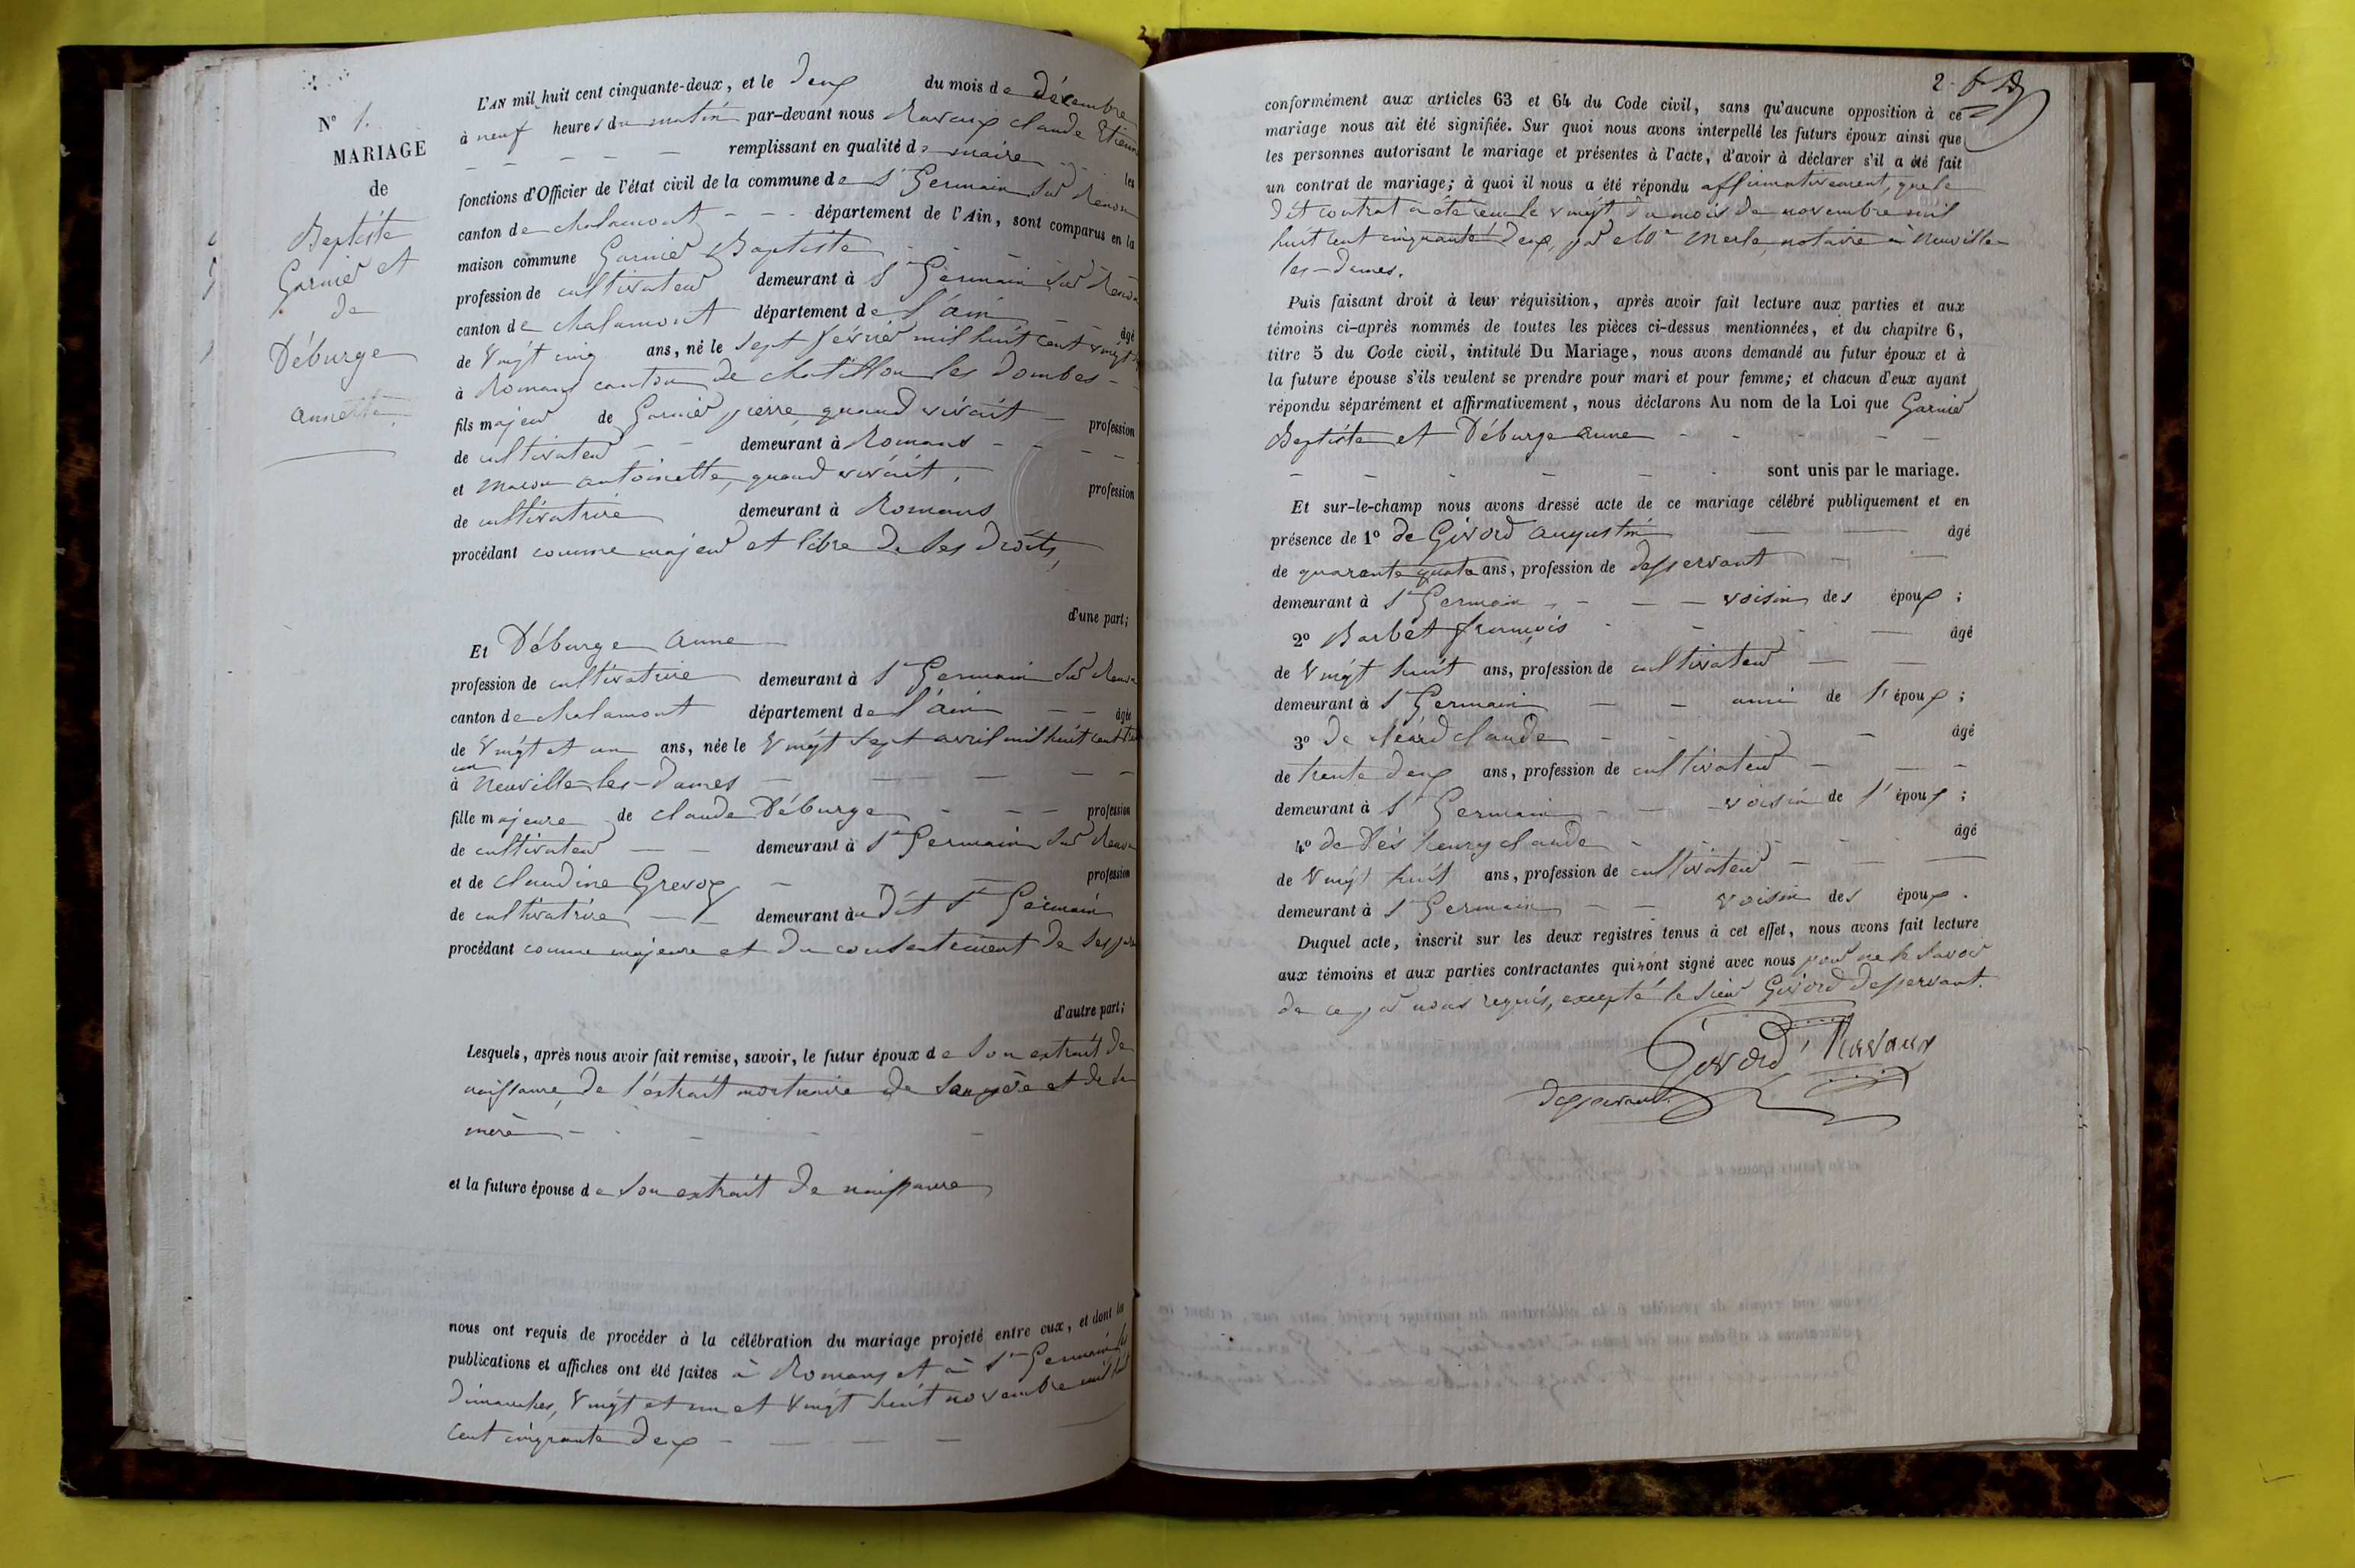 N° 1.
MARIAGE
de
Baptiste
Garnier et
de
Déburge
annette
L'AN mil huit cent cinquante-deux, et le deux du mois de décembre
à neuf heures du matin par-devant nous Ravaux claude Etienne
remplissant en qualité de maire les
fonctions d'Officier de l'état civil de la commune de St Germain sur Renon
canton de chalamont département de l'Ain, sont comparus en la
maison commune Garnier Baptiste
profession de cultivateur demeurant à St Germain sur Renon
canton de chalamont département de l'ain âgé
de vingt cinq ans, né le sept février mil huit cent vingt
à Romans canton de chatillon les Dombes
fils majeur de Garnier pierre quand vivait profession
de cultivateur demeurant à Romans
et antoinette, quand vivait, profession
de cultivatrice demeurant à Romans
procédant comme majeur et libre de ses droits,
d'une part;
Et Déburge Anne
profession de cultivatrice demeurant à St Germain sur Renon
canton de chalamont département de l'ain âgée
de vingt et un ans, née le vingt sept avril mil huit cent trente
un
à Neuville-les-Dames
fille majeure de claude Déburge profession
de cultivateur demeurant à St Germain sur Renon
et de claudine Grevoz profession
de cultivatrice demeurant au dit St Germain
procédant comme majeure et du consentement de ses père
d'autre part;
Lesquels, après nous avoir fait remise, savoir, le futur époux de son extrait de
naissance, de l'extrait mortuaire de son père et de sa
mère
et la future épouse de son extrait de naissance
nous ont requis de procéder à la célébration du mariage projeté entre eux, et dont les
publications et affiches ont été faites à Romans et à St Germain les
dimanches, vingt et un et vingt huit novembre mil huit
cent cinquante deux
2.
conformément aux articles 63 et 64 du Code civil, sans qu'aucune opposition à ce
mariage nous ait été signifiée. Sur quoi nous avons interpellé les futurs époux ainsi que
les personnes autorisant le mariage et présentes à l'acte, d'avoir à déclarer s'il a été fait
un contrat de mariage; à quoi il nous a été répondu affirmativement, que le
dit contrat a été reçu le vingt du mois de novembre mil
huit cent cinquante deux, par Me Merle, notaire à Neuville
les-Dames.
Puis faisant droit à leur réquisition, après avoir fait lecture aux parties et aux
témoins ci-après nommés de toutes les pièces ci-dessus mentionnées, et du chapitre 6,
titre 5 du Code civil, intitulé Du Mariage, nous avons demandé au futur époux et à
la future épouse s'ils veulent se prendre pour mari et pour femme; et chacun d'eux ayant
répondu séparément et affirmativement, nous déclarons Au nom de la Loi que Garnier
Baptiste et Déburge Anne
sont unis par le mariage.
Et sur-le-champ nous avons dressé acte de ce mariage célébré publiquement et en
présence de 1° de Girord Augustin âgé
de quarante quatre ans, profession de desservant
demeurant à St Germain voisin des époux;
2° Barbet françois âgé
de vingt huit ans, profession de cultivateur
demeurant à St Germain ami de l'époux;
3° de claude âgé
de trente deux ans, profession de cultivateur
demeurant à St Germain voisin de l'époux;
4° de henry claude âgé
de vingt huit ans, profession de cultivateur
demeurant à St Germain voisin des époux.
Duquel acte, inscrit sur les deux registres tenus à cet effet, nous avons fait lecture
aux témoins et aux parties contractantes qui n'ont signé avec nous pour ne le savoir
de ce par nous requis, excepté le sieur Girord desservant.
Girord Ravaux
desservant